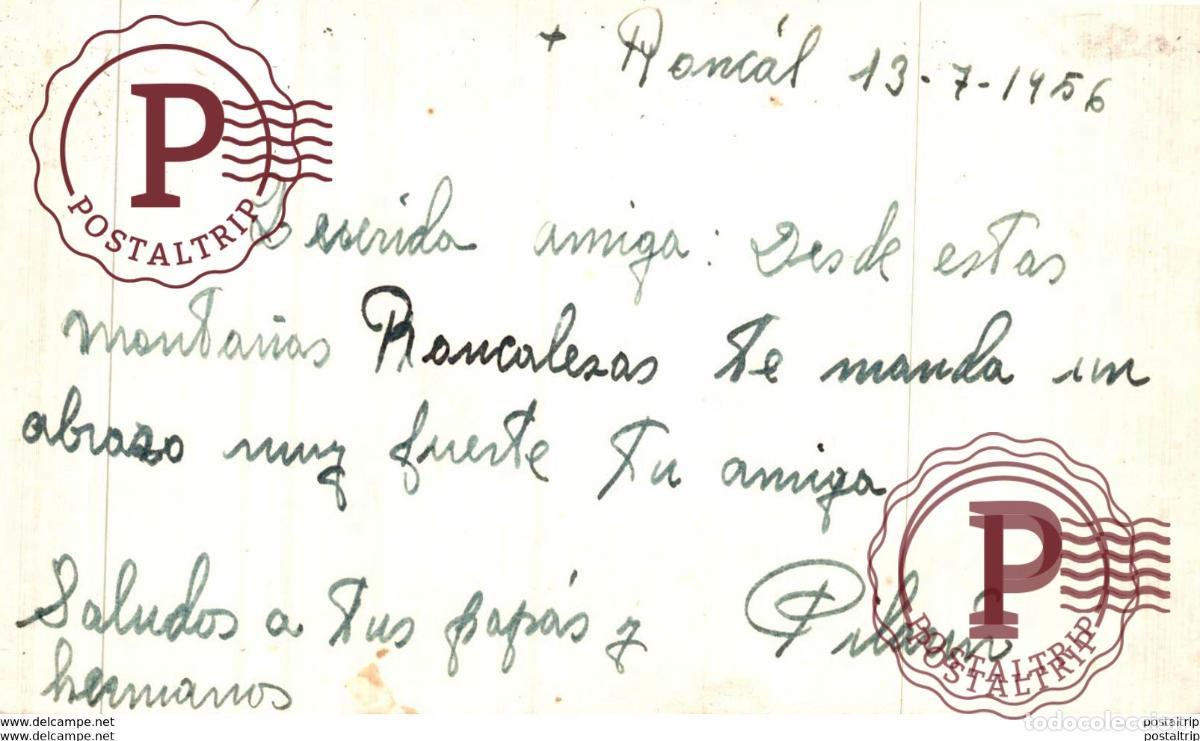 + Roncál 13-7-1956
Querida amiga: Desde estas
montañas Roncalesas te manda un
abrazo muy fuerte Tu amiga
Saludos a tus papás y
hermanos
P
POSTALTRIP
P
POSTALTRIP
POSTALTRIP
todocoleccion
www.delcampe.net
postaltrip
www.delcampe.net
postaltrip